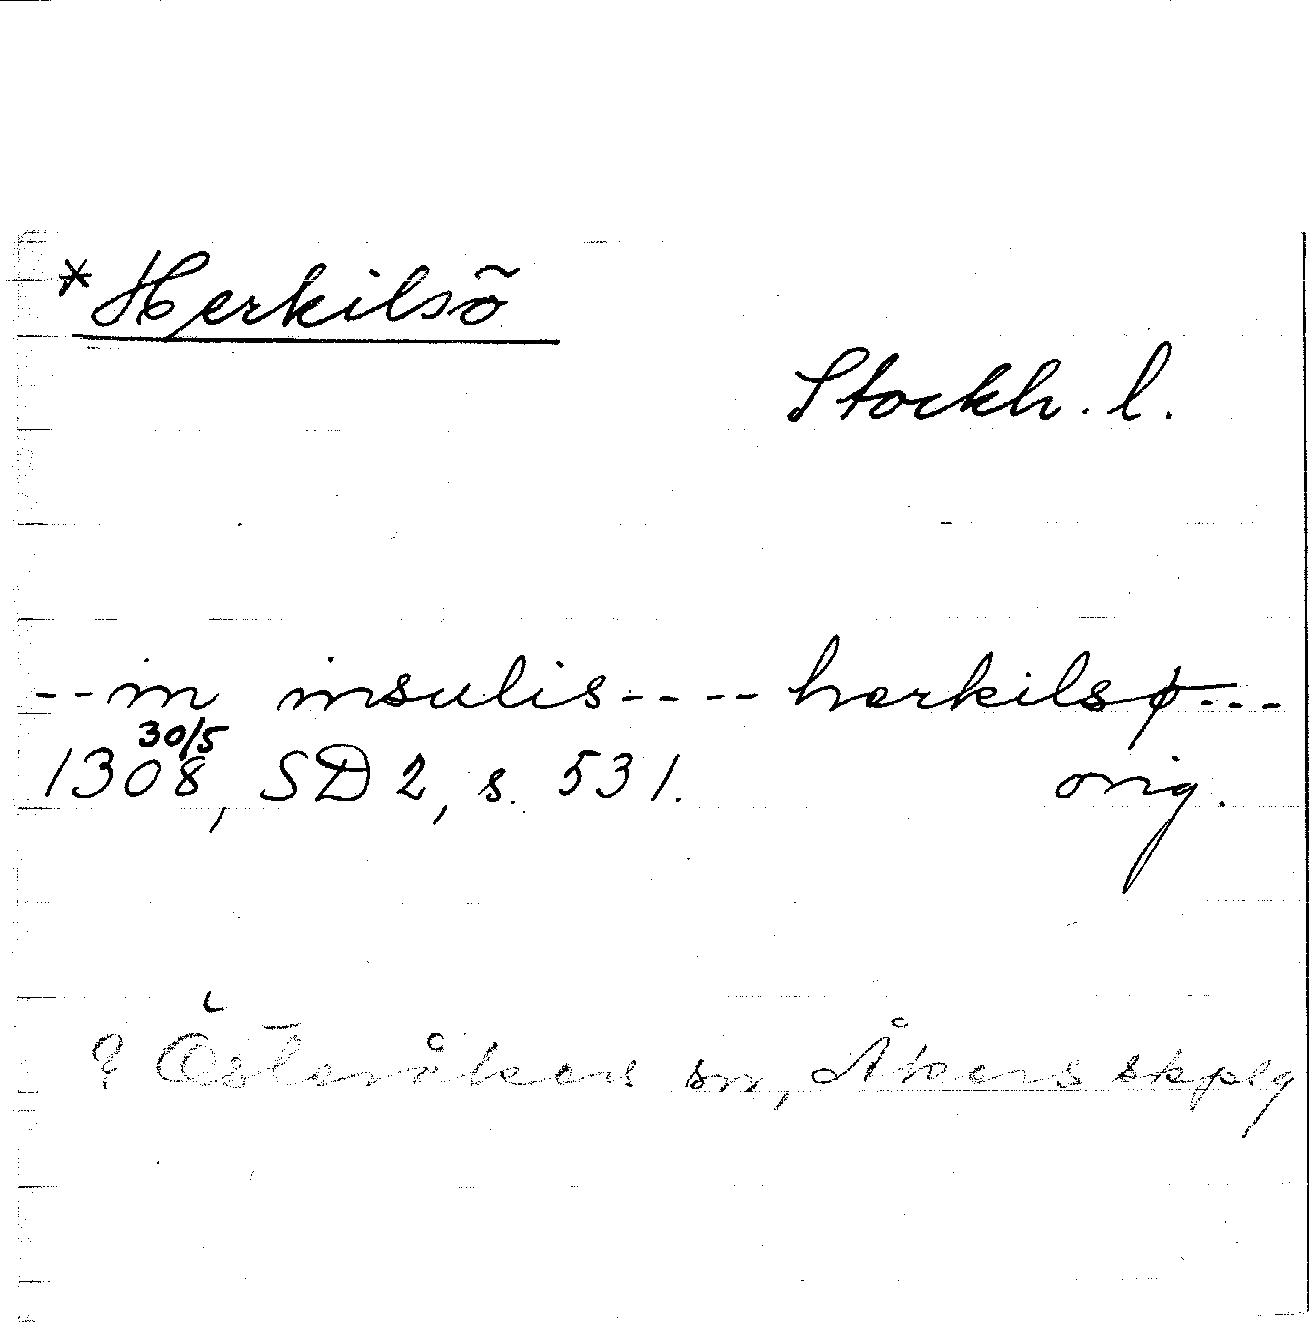 *Herkilsö
Stockh. l.
--in insulis---- herkilsø---
30/5
1308, SD 2, s. 531. orig.
? Österåkers sn, Åkers skpslg